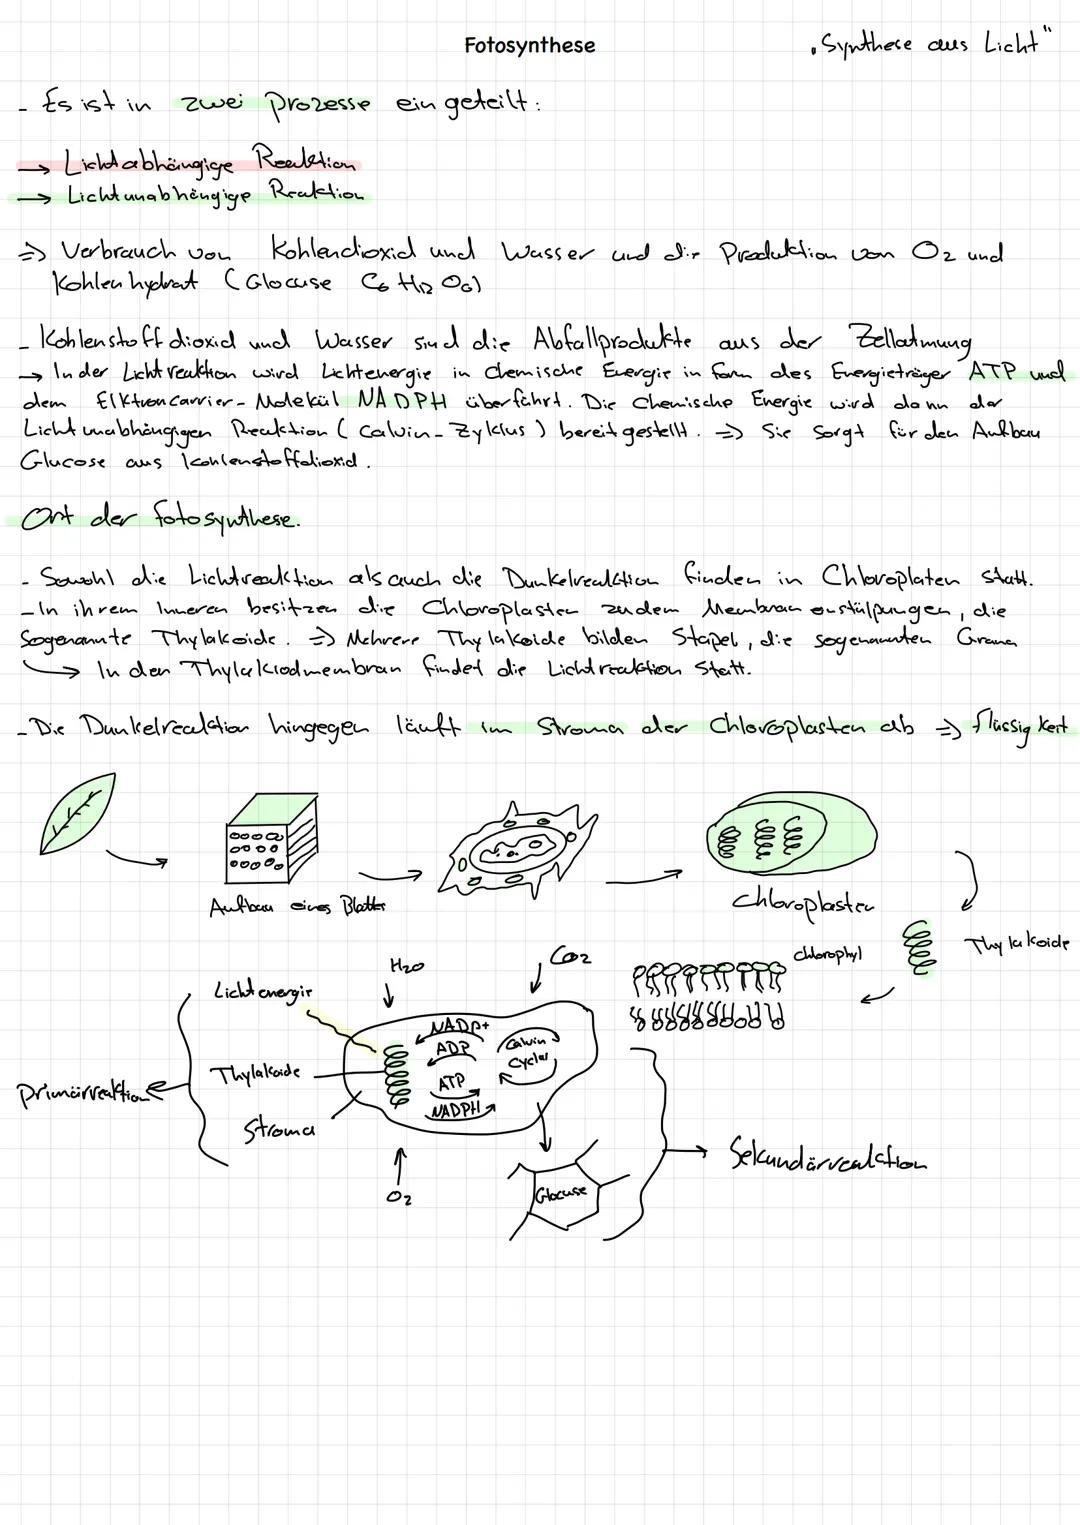 Fotosynthese
„Synthese aus Licht"
- Es ist in zwei Prozesse eingeteilt:
→ Lichtabhängige Reaktion
→ Lichtunabhängige Reaktion
=> Verbrauch von Kohlendioxid und Wasser und die Produktion von O2 und
Kohlenhydrat (Glocuse C6 H12 O6)
- Kohlenstoffdioxid und Wasser sind die Abfallprodukte aus der Zellatmung
→ In der Lichtreaktion wird Lichtenergie in chemische Energie in form des Energieträger ATP und
dem Elktroncarrier-Molekül NADPH überführt. Die Chemische Energie wird dann der
Lichtunabhängigen Reaktion (Calvin-Zyklus) bereitgestellt. => Sie sorgt für den Aufbau
Glucose aus Kohlenstoffdioxid.
Ort der fotosynthese.
- Sowohl die Lichtreaktion als auch die Dunkelreaktion finden in Chloroplaten statt.
- In ihrem Inneren besitzen die Chloroplasten zudem Membranausstülpungen, die
sogenannte Thylakoide. => Mehrere Thylakoide bilden Stapel, die sogenannten Grana
→ In den Thylakiodmembran findet die Lichtreaktion statt.
- Die Dunkelreaktion hingegen läuft im Stroma der Chloroplasten ab => flüssigkeit
Aufbau eines Blattes
Chloroplasten
Thylakoide
chlorophyl
H2O
CO2
Lichtenergie
NADP+
ADP
Calvin
Cyclus
Thylakoide
ATP
NADPH
Primärreaktion
Stroma
Sekundärreaktion
O2
Glocuse